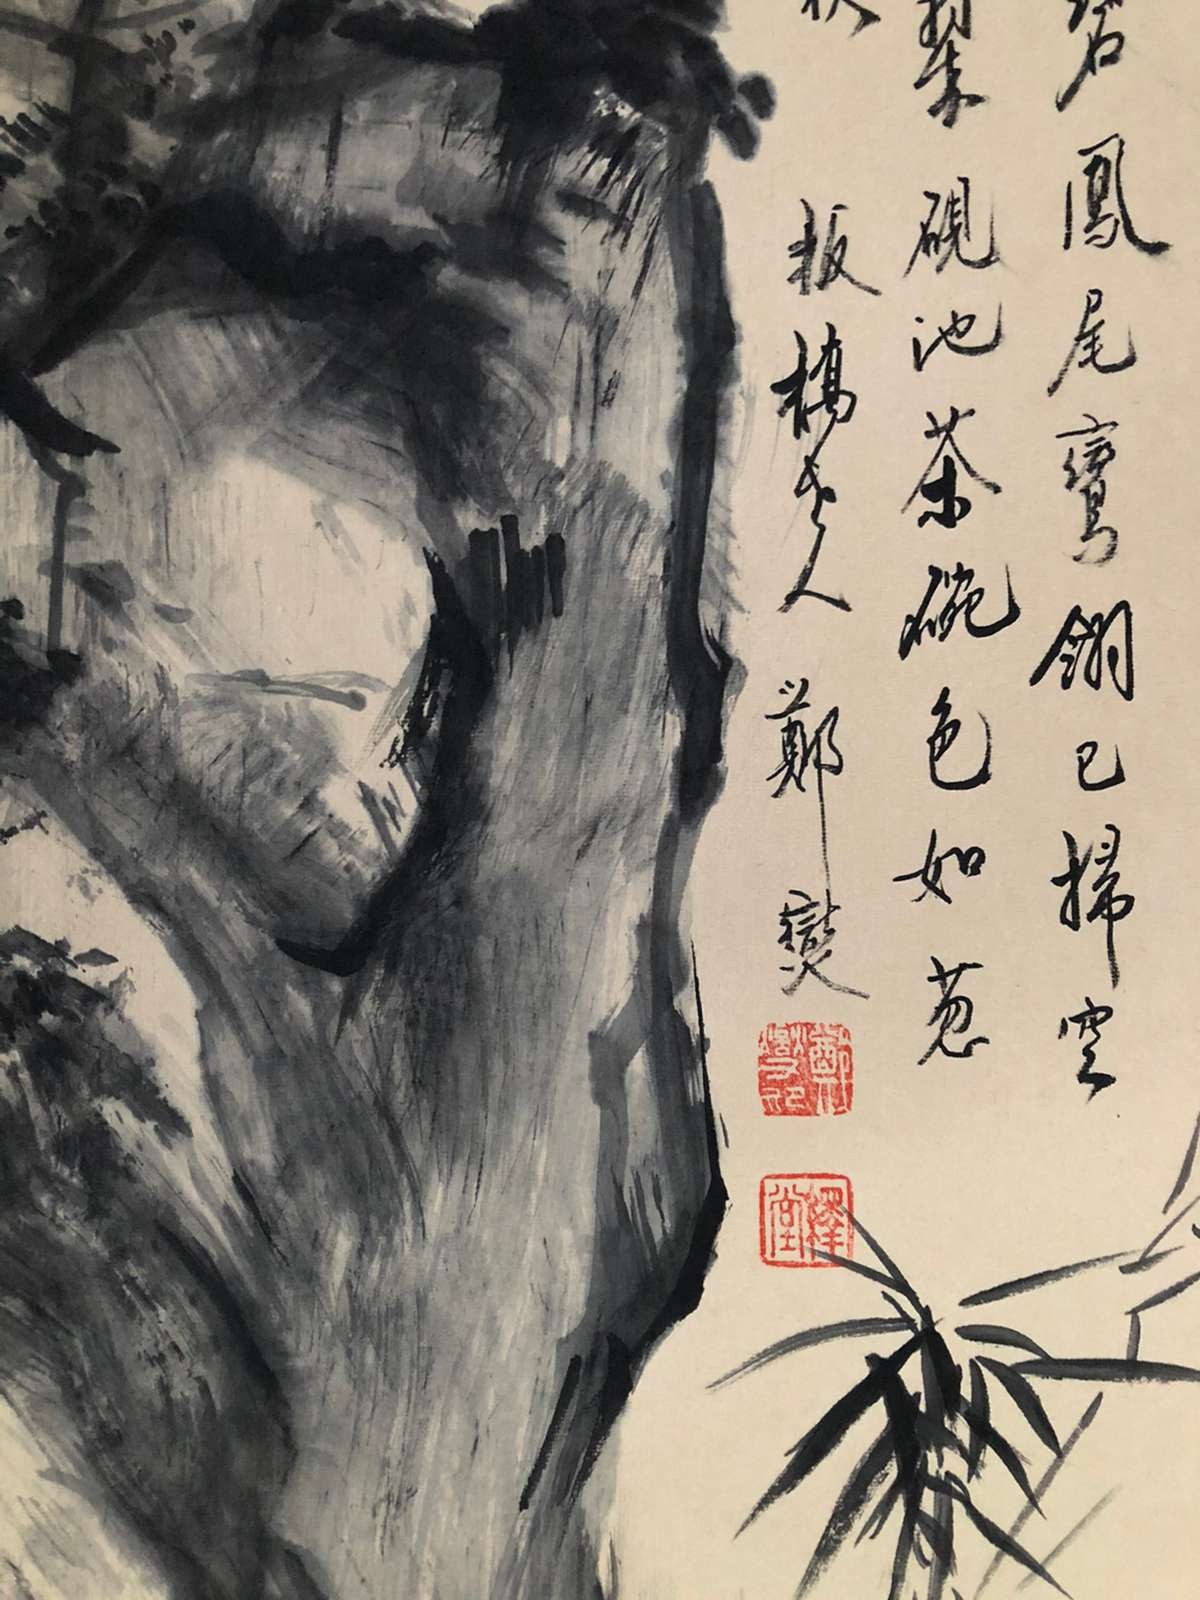 碧鳳尾鸞翎已掃空
翠硯池茶碗色如蔥
板橋老人鄭燮
鄭燮印